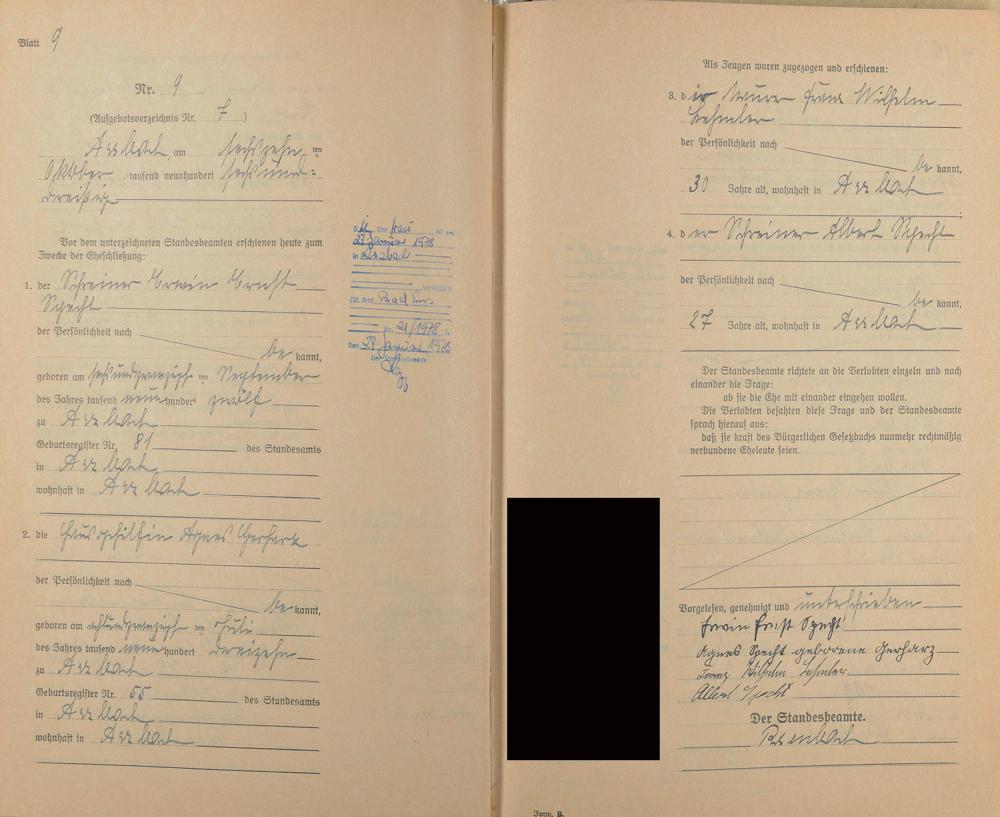 Blatt 9
Nr. 9
(Aufgebotsverzeichnis Nr. 7)
Arzbach, am sechszehnten
Oktober tausend neunhundert sechsund=
dreißig
Vor dem unterzeichneten Standesbeamten erschienen heute zum
Zwecke der Eheschließung:
1. der Schreiner Erwin Ernst
Specht
der Persönlichkeit nach
be kannt,
geboren am sechsundzwanzigsten September
des Jahres tausend neunhundert zwölf
zu Arzbach
Geburtsregister Nr. 81 des Standesamts
in Arzbach
wohnhaft in Arzbach
2. die Hausgehilfin Agnes Gerharz
der Persönlichkeit nach
be kannt,
geboren am achtundzwanzigsten Juli
des Jahres tausend neunhundert dreizehn
zu Arzbach
Geburtsregister Nr. 55 des Standesamts
in Arzbach
wohnhaft in Arzbach
Die Ehefrau ist am
27. Januar 1978
in Arzbach
verstorben
(St. Amt Bad Ems
Nr. 21/1978).
Den 29. Januar 1978
Der Standesbeamte
Als Zeugen waren zugezogen und erschienen:
3. der Franz Wilhelm
der Persönlichkeit nach
be kannt,
30 Jahre alt, wohnhaft in Arzbach
4. der Schreiner Albert Specht
der Persönlichkeit nach
be kannt,
27 Jahre alt, wohnhaft in Arzbach
Der Standesbeamte richtete an die Verlobten einzeln und nach
einander die Frage:
ob sie die Ehe mit einander eingehen wollen.
Die Verlobten bejahten diese Frage und der Standesbeamte
sprach hierauf aus:
daß sie kraft des Bürgerlichen Gesetzbuchs nunmehr rechtmäßig
verbundene Eheleute seien.
Vorgelesen, genehmigt und unterschrieben
Erwin Ernst Specht
Agnes Specht geborene Gerharz
Franz Wilhelm
Albert Specht
Der Standesbeamte.
Form. B.